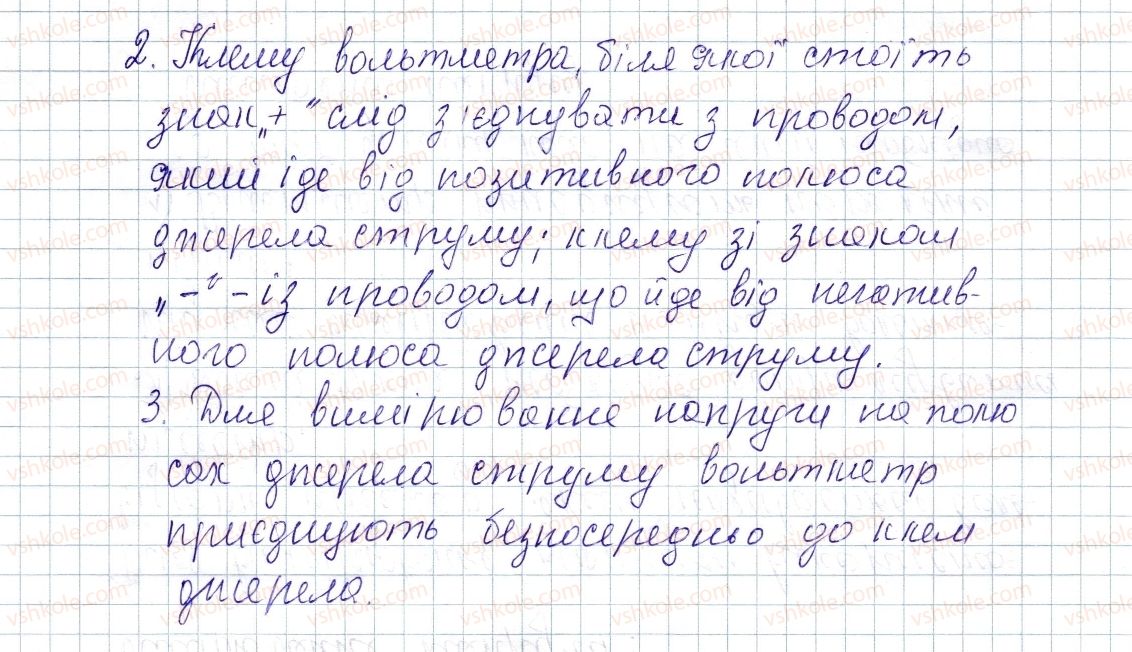 2. Клему вольтметра, біля якої стоїть
знак „+“ слід з'єднувати з проводом,
який іде від позитивного полюса
джерела струму; клему зі знаком
„-“ - із проводом, що йде від негатив-
ного полюса джерела струму.
3. Для вимірювання напруги на полю
сах джерела струму вольтметр
приєднують безпосередньо до клем
джерела.